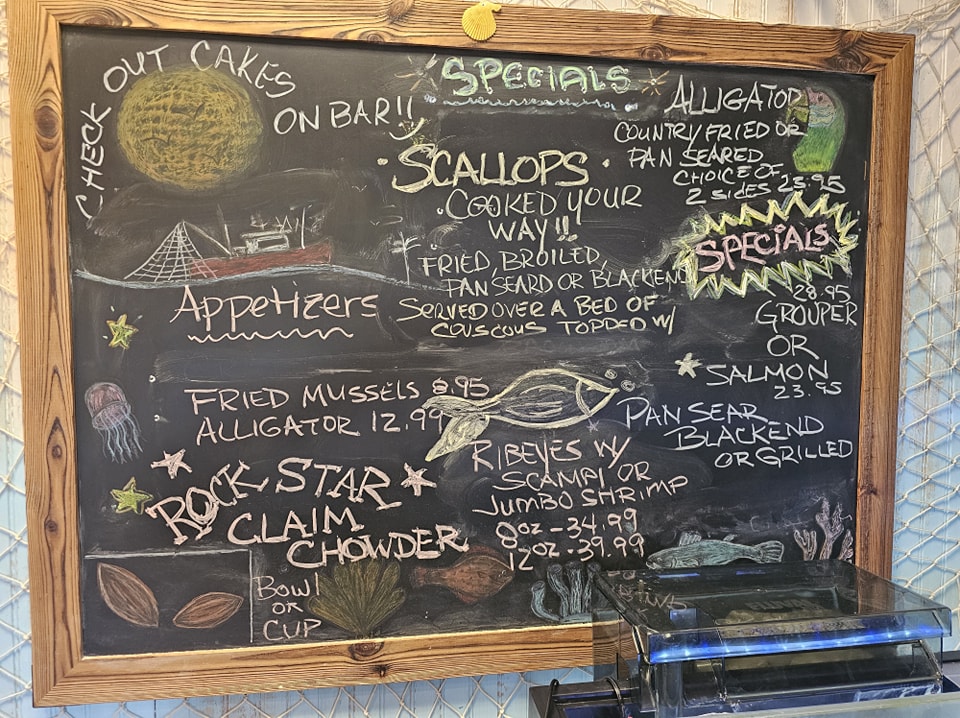 CHECK OUT CAKES
ON BAR!!
SPECIALS
SCALLOPS
COOKED YOUR
WAY!!
FRIED, BROILED,
PAN SEARD OR BLACKEND
SERVED OVER A BED OF
COUSCOUS TOPPED W/
ALLIGATOR
COUNTRY FRIED OR
PAN SEARED
CHOICE OF
2 SIDES 23.95
SPECIALS
28.95
GROUPER
OR
SALMON
23.95
PAN SEAR
BLACKEND
OR GRILLED
Appetizers
FRIED MUSSELS 8.95
ALLIGATOR 12.99
ROCK STAR
CLAIM
CHOWDER
BOWl
OR
CUP
RIBEYES W/
SCAMPI OR
JUMBO SHRIMP
8oz - 34.99
12oz - 39.99
12